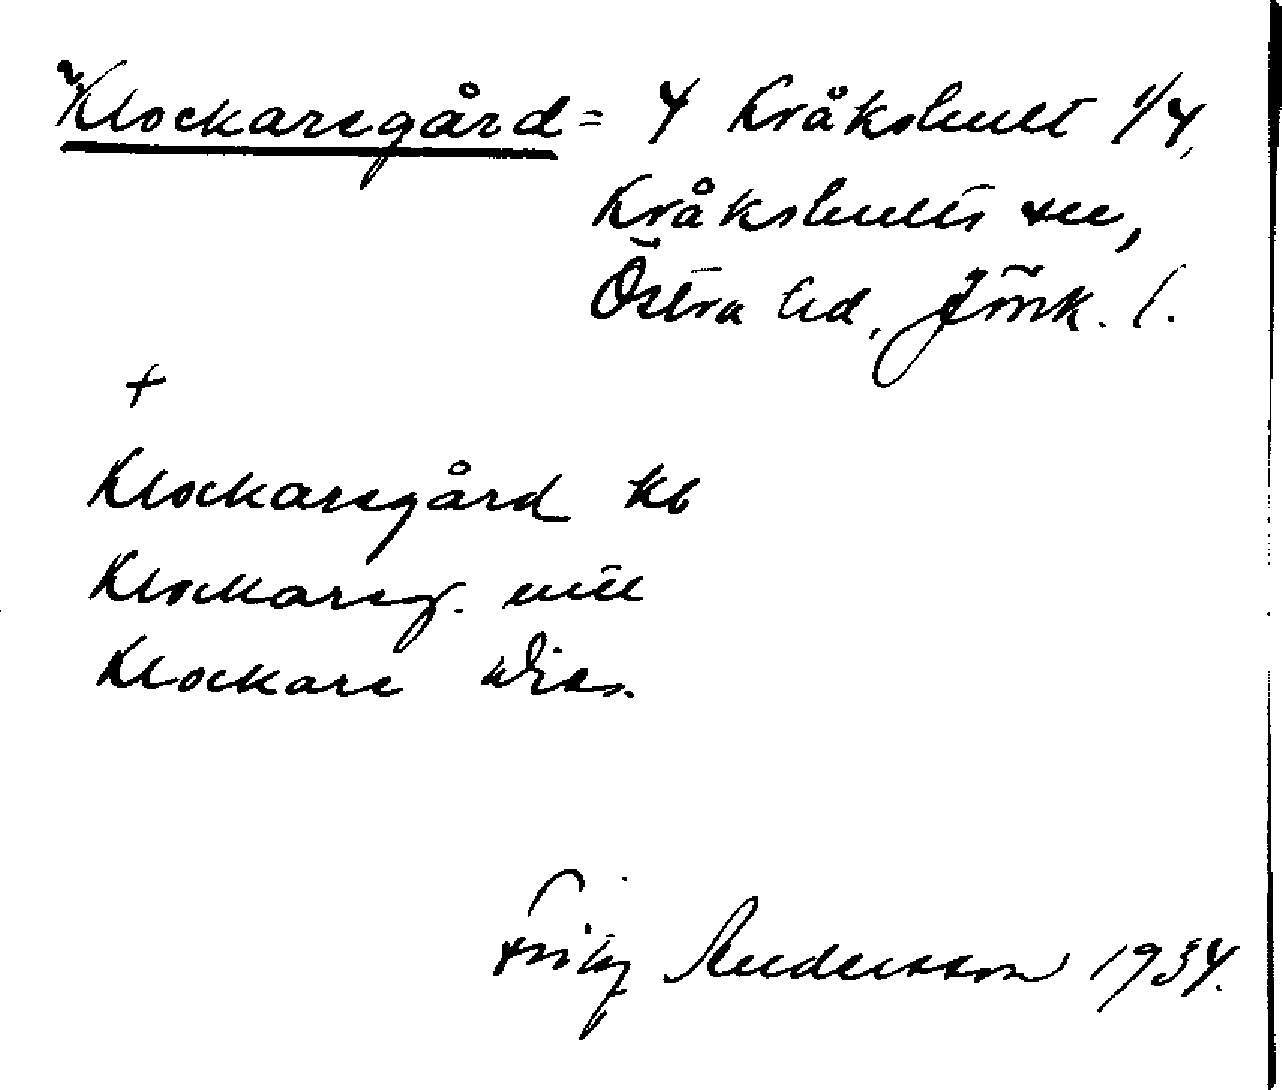 Klockaregård = 4 Kråkshult 1/4,
Kråkshults sn,
Östra hd, Jönk. l.
+
Klockaregård kb
Klockareg.
Klockare
Fritz Andersson 1934.